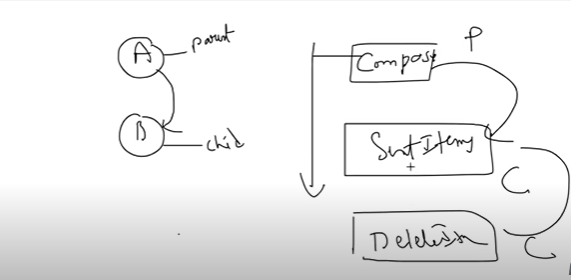 A parent
B
child
P
Compose
Sent Items
C
Deletion
C